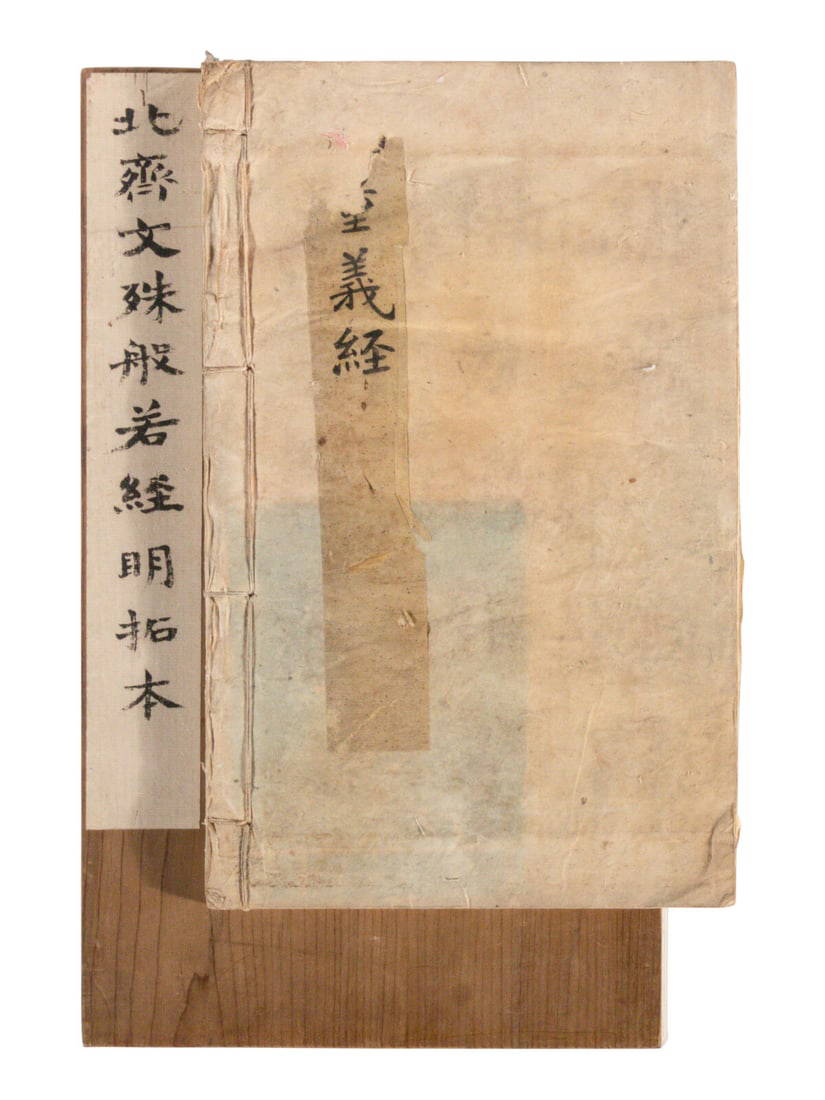 北齊文殊般若經明拓本
義経